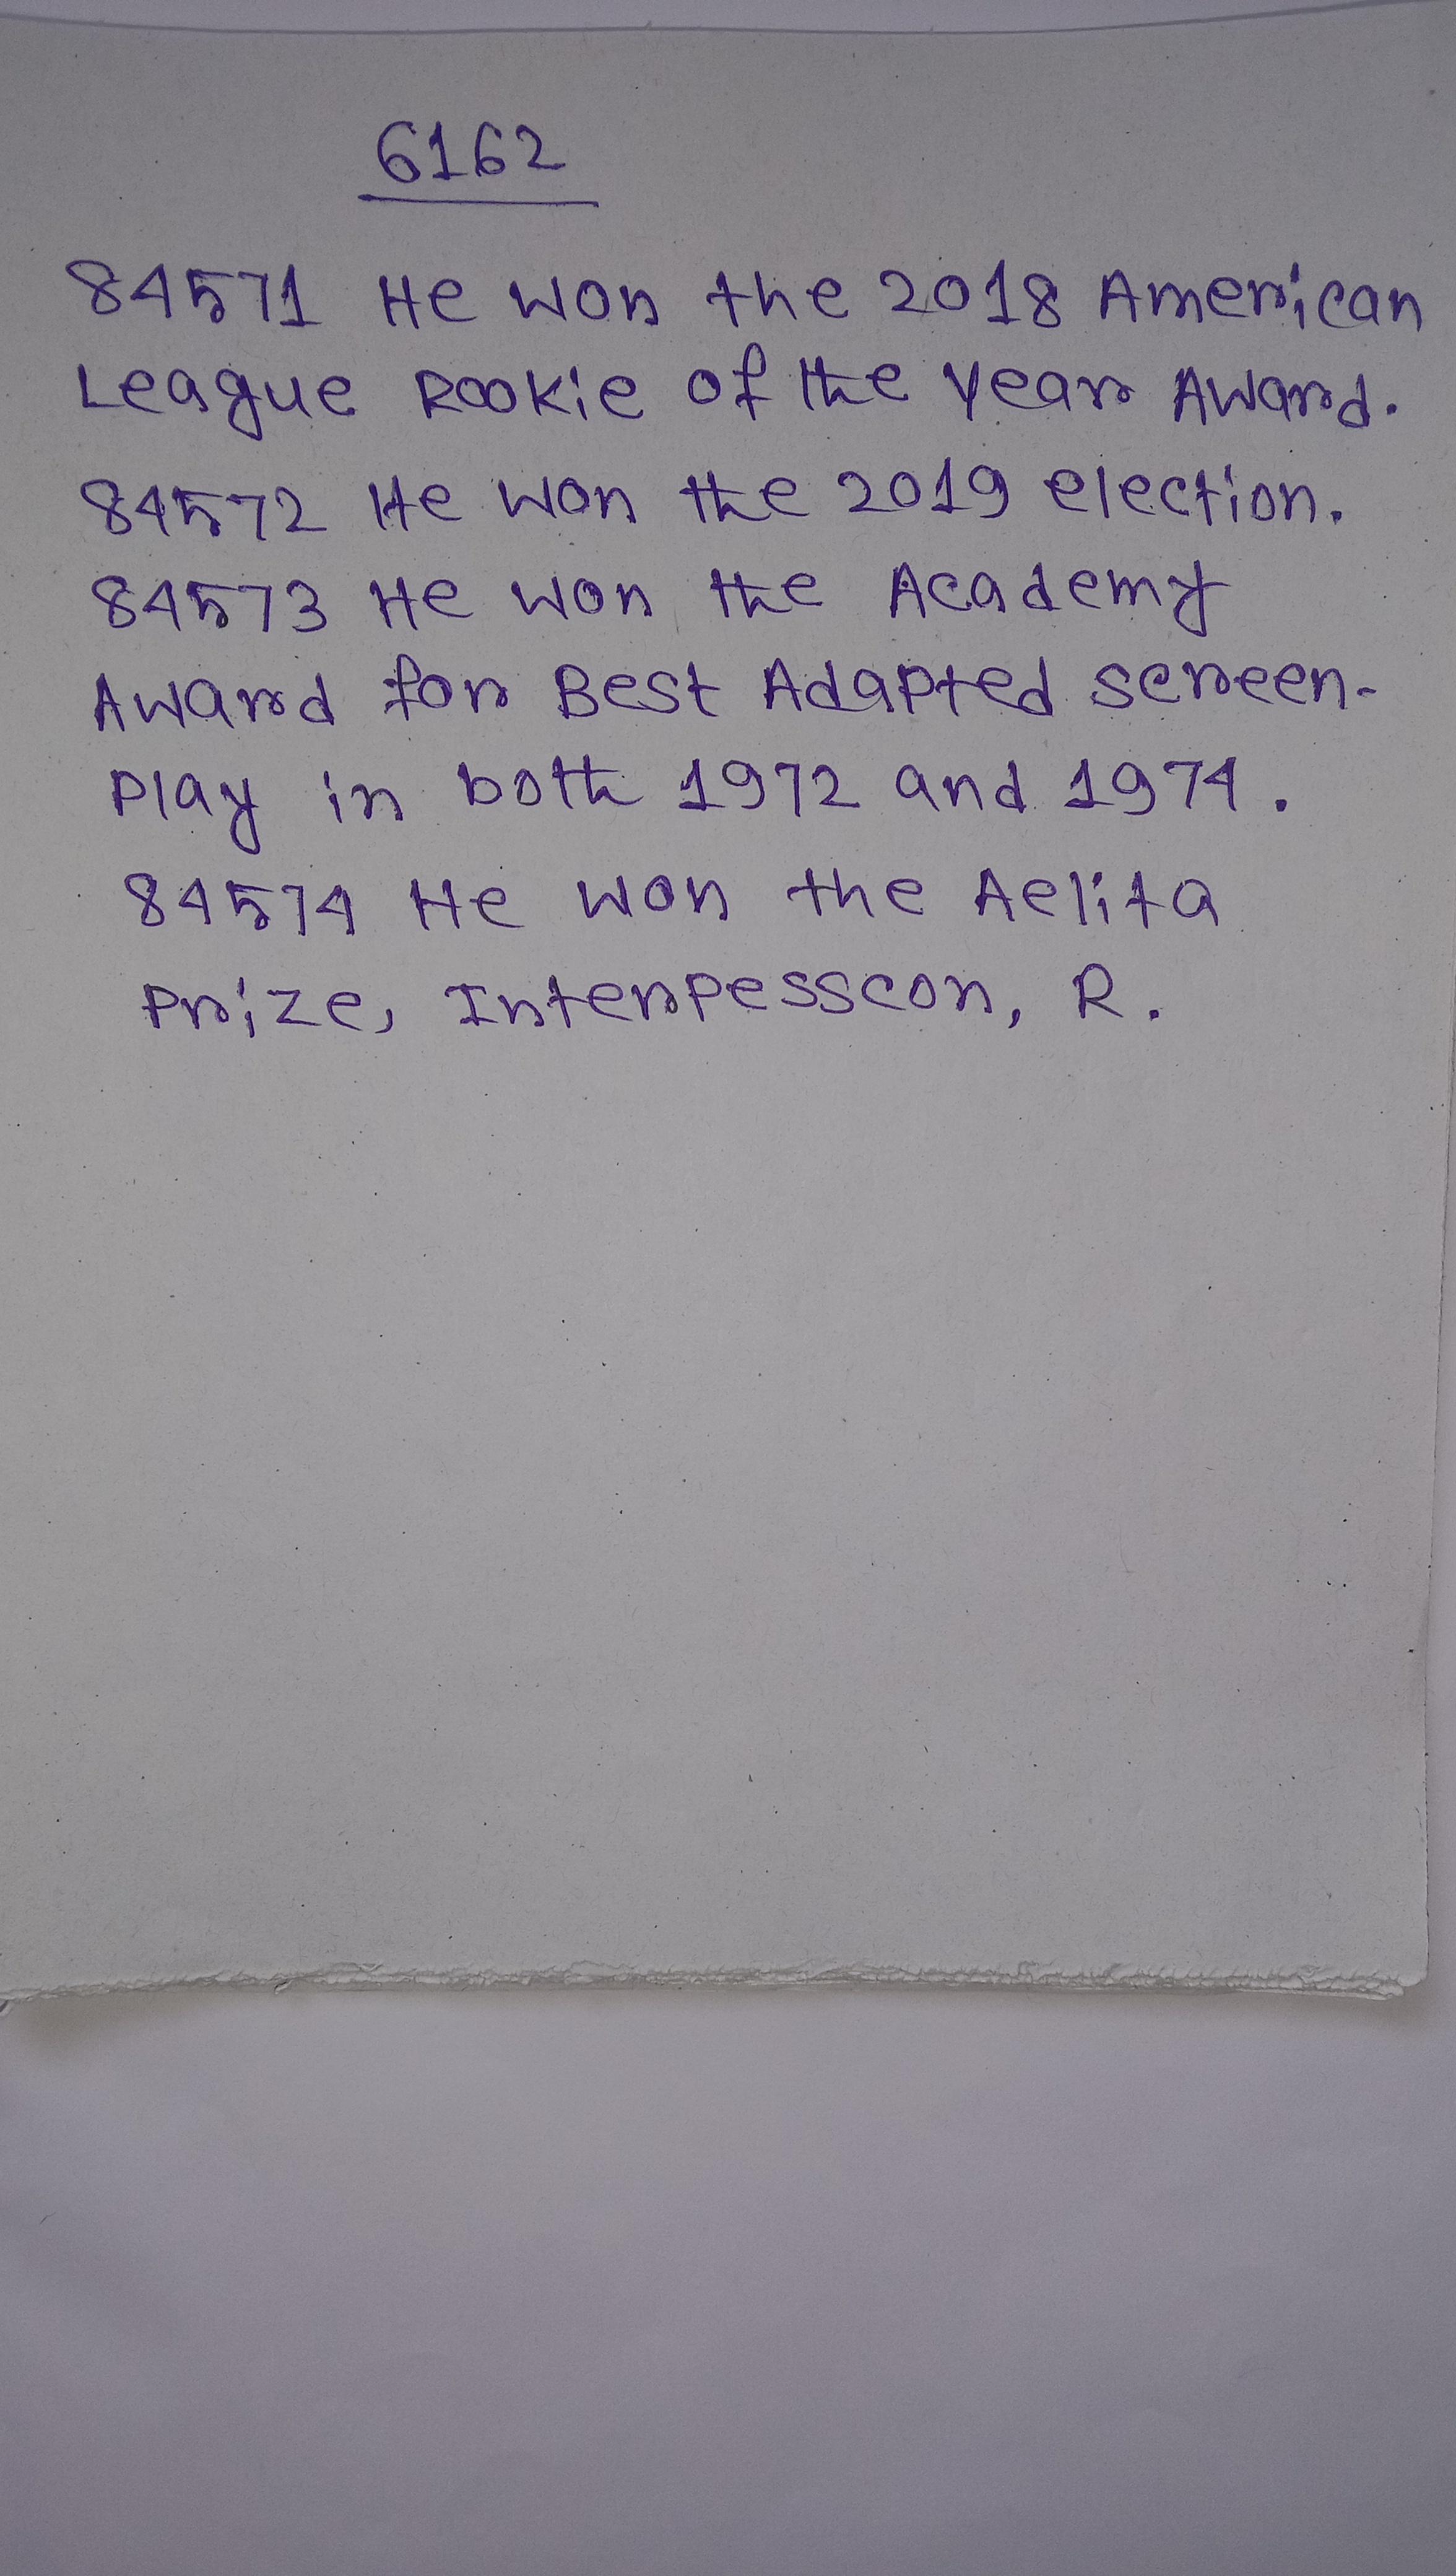 6162
84571 He won the 2018 American
League Rookie of the Year Award.
84572 He won the 2019 election.
84573 He won the Academy
Award for Best Adapted screen-
play in both 1972 and 1974.
84574 He won the Aelita
Prize, Interpesscon, R.